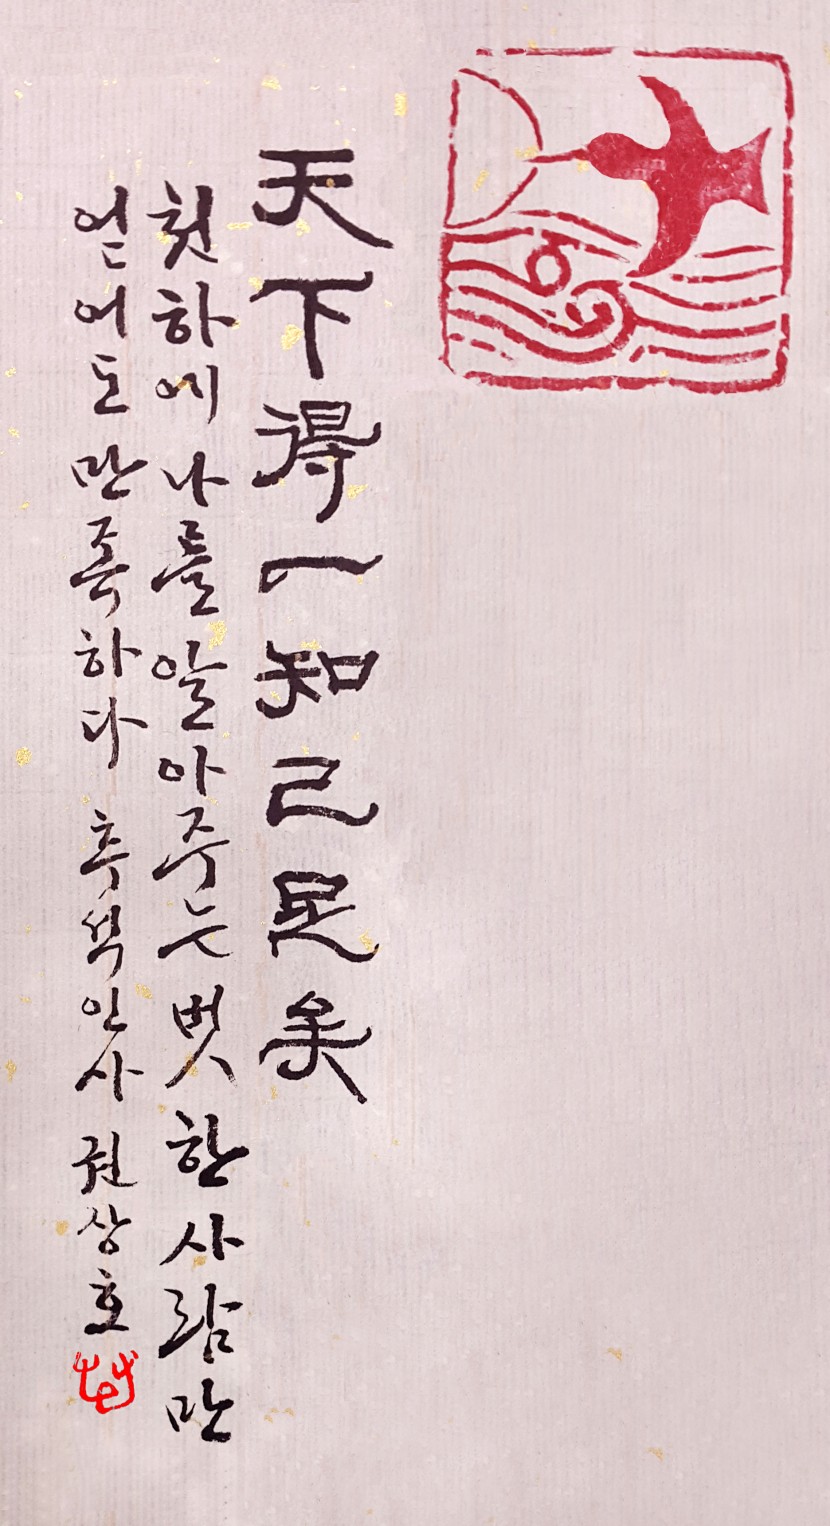 天下得一知己足矣
천하에 나를 알아주는 벗 한 사람만
얻어도 만족하다 추석인사 권상호